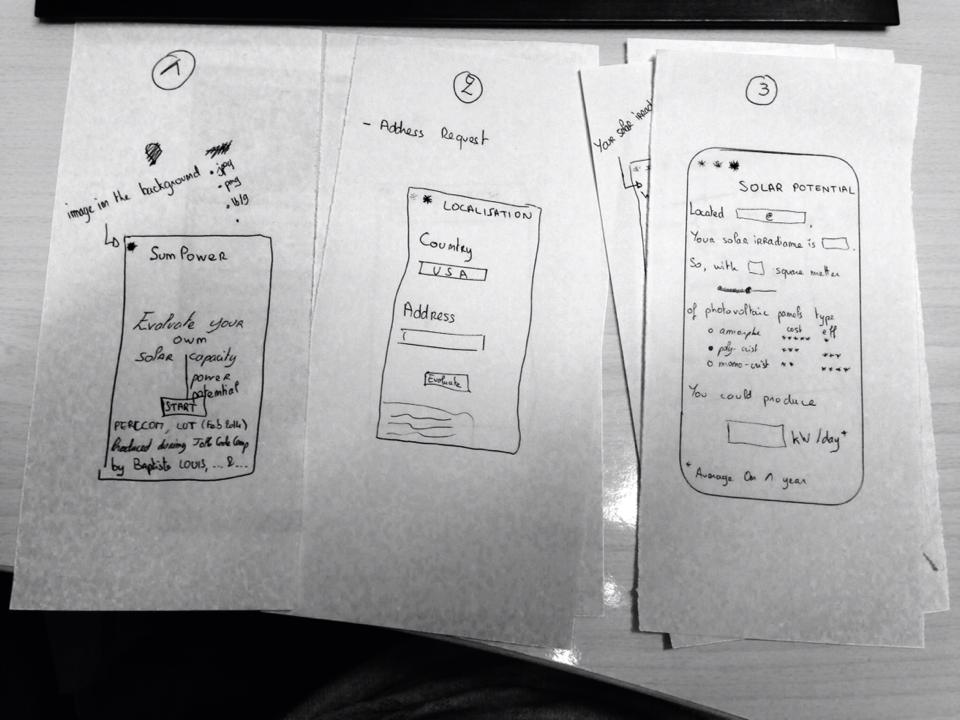 1
image in the background
.jpg
.png
SunPower
Evaluate your
own
solar capacity
power
potential
START
PERCCOM, LUT (Feb 2014)
Produced during Code Camp
by Baptiste LOUIS, ... & ...
2
- Address Request
LOCALISATION
Country
USA
Address
Evaluate
Your solar irrad
3
SOLAR POTENTIAL
Located @
Your solar irradiame is .
So, with square metter
of photovoltaic panels type
amorphe cost eff
poly-crist *** ***
mono-crist ** ****
You could produce
kW/day*
* Average On 1 year